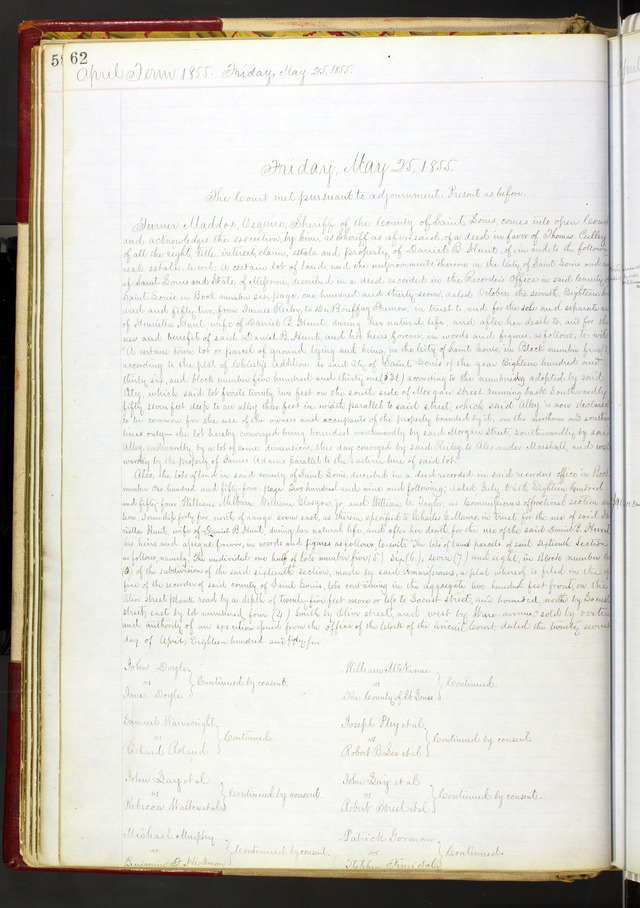 62
April Term 1855. Friday, May 25, 1855.
Friday, May 25, 1855.
The Court met pursuant to adjournment. Present as before.
Turner Maddox, Esquire, Sheriff of the County of Saint Louis comes into open Court
and acknowledges the execution by him, as Sheriff as aforesaid, of a deed in favor of Thomas
of all the right, title, interest, claim, estate and property, of Daniel B Hunt, of, in and to the following
real estate, to wit: a certain lot of land and the improvements thereon in the City of Saint Louis and
of Saint Louis and State of Missouri, described in a deed recorded in the Recorder's Office in said County of
Saint Louis in Book number six, page one hundred and thirty seven, dated October the seventh Eighteen
dred and fifty two, from James Reilly to in trust to, and for the sole and separate use
of Hunt, wife of Daniel B. Hunt, during her natural life, and after her death to, and for the
use and benefit of said Daniel B. Hunt, and his heirs forever, in words and figures as follows, to wit:
"A certain town lot or parcel of ground lying and being in the City of Saint Louis, in Block number
according to the plat of Christy's Addition to said City of Saint Louis of the year Eighteen hundred and
thirty six, and block number five hundred and thirty one (531) according to the numbering adopted by said
City, which said lot fronts twenty two feet on the south side of Morgan Street running back Southwardly
fifty seven feet deep to an alley three feet in width parallel to said street, which said alley is now declared
to be common for the use of the owners and occupants of the property bounded by it, on the northern and southern
lines only— the lot hereby conveyed being bounded northwardly by said Morgan Street, southwardly by said
Alley, eastwardly by a lot of same dimensions, this day conveyed by said Reilly to Alexander Marshall, and west
wardly by the property of Adams parallel to the eastern line of said lot."
Also, the lots of land in said county of Saint Louis, described in a deed recorded in said recorders office in Book
number one hundred and fifty four, page two hundred and nine and following; dated July Eighteen hundred
and fifty four, William Milburn, William Glasgow, Jr. and William W. Taylor, as commissioners of fractional section
teen, Township forty five north of range seven east, as therein specified to Charles in trust for the use of said
Hunt, wife of Daniel B Hunt, during her natural life, and after her death for the use of the said Daniel B. Hunt
his heirs and assigns forever, in words and figures as follows to wit: The lots of land parcels of said Sixteenth Section
as follows, namely: The undivided one half of lots number five (5) six (6), seven (7) and eight, in Block number
of the subdivision of the said sixteenth section, made by said commissioners, a plat whereof is filed in the of
fice of the recorder of said county of Saint Louis, lots containing in the aggregate two hundred feet front, on the
Olive Street plank road by a depth of twenty-five feet more or less to Locust Street, and bounded north by Locust
Street, east by lot numbered four (4) South by Olive Street, and west by Ware Avenue," sold by virtue
and authority of an execution issued from the office of the Clerk of the Circuit Court, dated the twenty seventh
day of April, Eighteen hundred and fifty five
John Doyle
vs } Continued by consent.
Jane Doyle
William McKinnee
vs } Continued.
The County of St Louis
Samuel Wainwright
vs } Continued
Richard Roland
Joseph Pley et al
vs } Continued by consent.
Robert B Lee et al
John Gay et al
vs } Continued by consent
Rebecca Walton et al
John Gay et al
vs } Continued by consent.
Robert Street et al
Michael Murphy
vs } Continued by consent.
Benjamin F. Hickman
Patrick Gorman
vs } Continued.